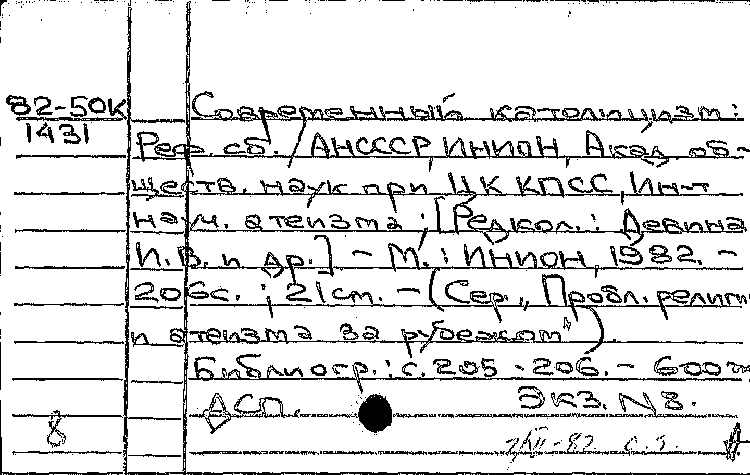 82-50К
1431
Современный католицизм:
Реф. сб. / АН СССР, ИНИОН, Акад. об-
ществ. наук при ЦК КПСС, Ин-т
науч. атеизма; [Редкол.: Девина
И.В. и др.] - М.: ИНИОН, 1982. -
206с.; 21см. - (Сер. "Пробл. религи
и атеизма за рубежом").
Библиогр.: с. 205 - 206. - 600
ДСП. Экз. N 8.
8